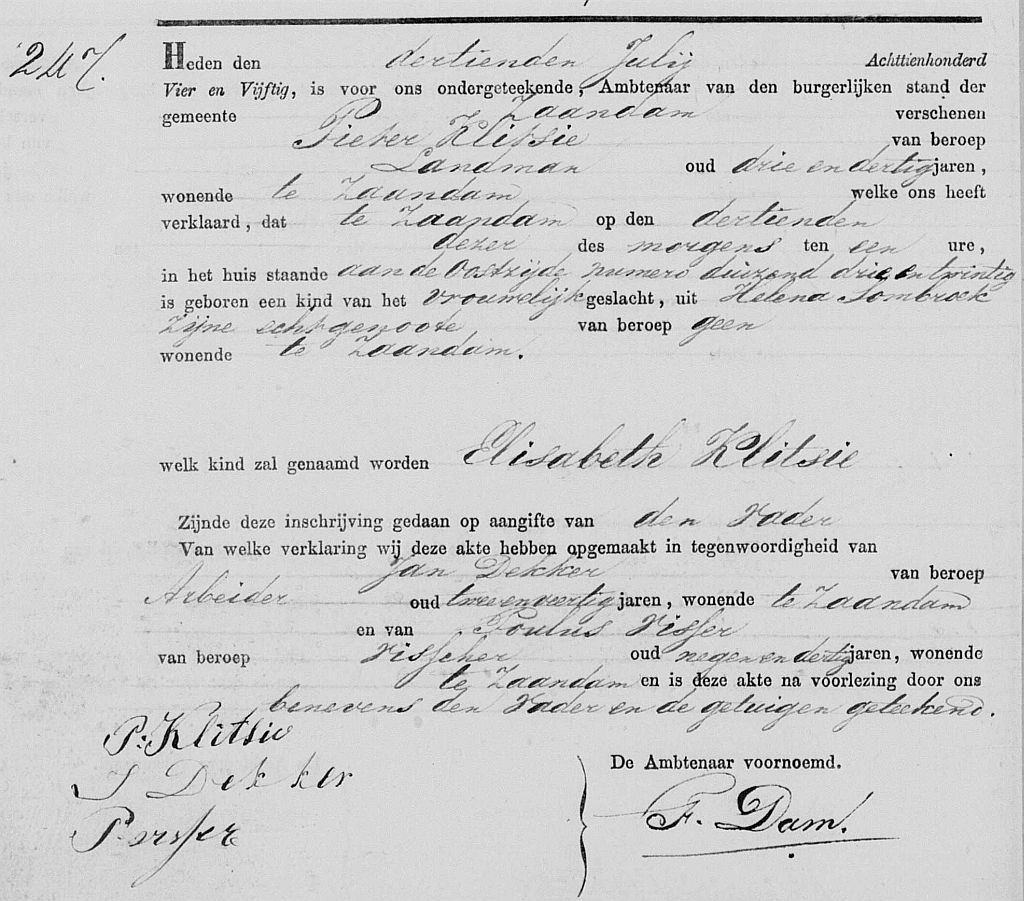 247.
Heden den dertienden Julij Achttienhonderd
Vier en Vijftig, is voor ons ondergeteekende, Ambtenaar van den burgerlijken stand der
gemeente Zaandam verschenen
Pieter Klitsie van beroep
Landman oud drie en dertig jaren,
wonende te Zaandam welke ons heeft
verklaard, dat te Zaandam op den dertienden
dezer des morgens ten een ure,
in het huis staande aan de Oostzijde numero duizend drie en twintig
is geboren een kind van het vrouwelijk geslacht, uit Helena Sombroek
zijne echtgenoote van beroep geen
wonende te Zaandam.
welk kind zal genaamd worden Elisabeth Klitsie
Zijnde deze inschrijving gedaan op aangifte van den Vader
Van welke verklaring wij deze akte hebben opgemaakt in tegenwoordigheid van
Jan Dekker van beroep
Arbeider oud twee en veertig jaren, wonende te Zaandam
en van Poulus Visser
van beroep Visscher oud negen en dertig jaren, wonende
te Zaandam en is deze akte na voorlezing door ons
benevens den Vader en de getuigen geteekend.
P: Klitsie
J Dekker
P. visser
De Ambtenaar voornoemd.
F. Dam.